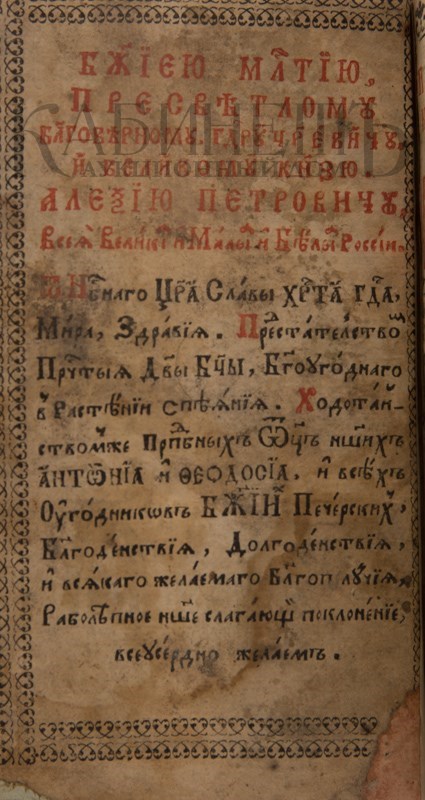 БЖ҃ІЕЮ МЛ҃ТІЮ,
ПРЕСВѢТЛОМУ
БЛ҃ГОВѢРНОМУ ГДРЮ ЦРЕВИЧУ,
И ВЕЛИКОМУ КНЗЮ
АЛЕѮІЮ ПЕТРОВИЧУ,
Всеѧ̀ Великїѧ и Малыѧ и Бѣлыѧ Россїи.
Ѿ Нб҃наго Цр҃ѧ̀ Сла́вы ХРТА̀ ГДА,
Ми́ра, Здра́вїѧ. Предста́телство
Прⷭ҇тыѧ Дв҃ы Бцⷣы, Бг҃оуго́днаго
в̾ Расте́нїи спѣѧ́нїѧ. Ходота́й-
ствомже Прпⷣбныхъ Ѻ҃ц҃ъ нши́хъ
АНТѠ́НЇА И ѲЕОДО́СЇА, и всѣ́хъ
Оуго́дникѡвъ БЖ҃ІИХ Пече́рских,
Бл҃годе́нствїѧ, Долгоде́нствїѧ,
и всѧ́каго жела́емаго Бл҃гополꙋ́чїѧ,
Раболѣ́пное нше слага́ющїи поклоне́нїе,
всеусе́рдно жела́емъ.
КАБИНЕТЪ
АУКЦИОННЫЙ ДОМ